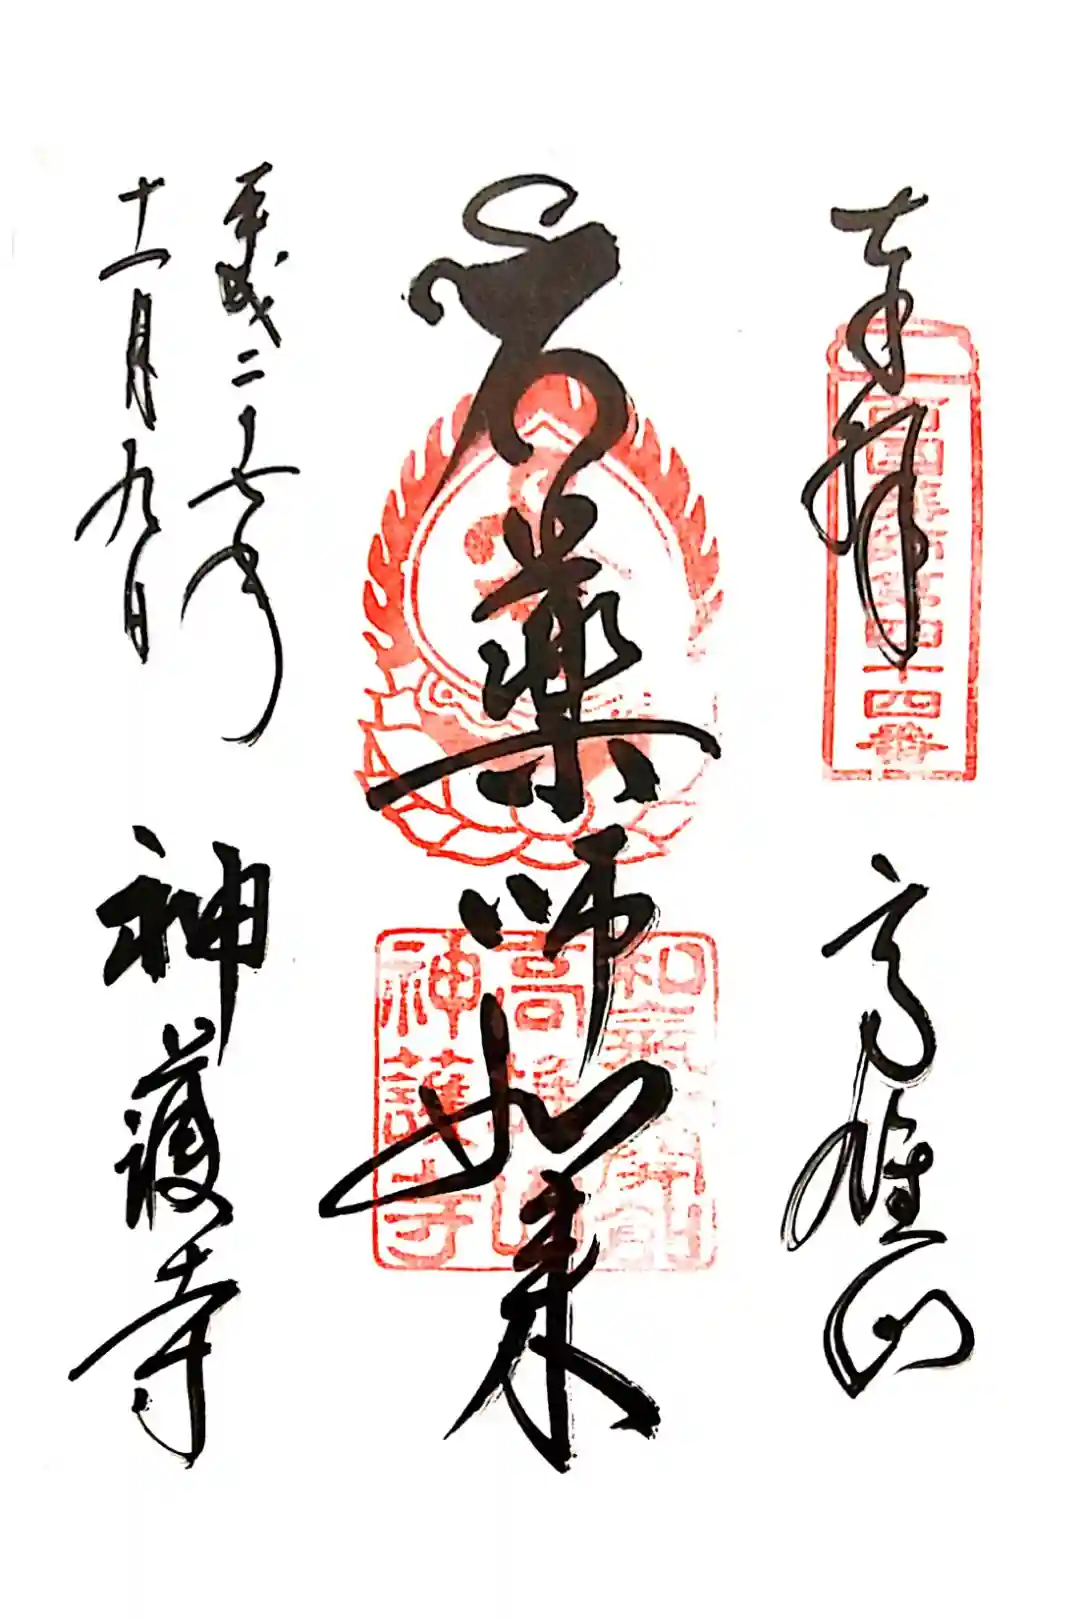 奉拝
西国薬師第四十四番
高雄山
薬師如来
和氣
高雄山
神護寺
平成二十七年
十一月九日
神護寺